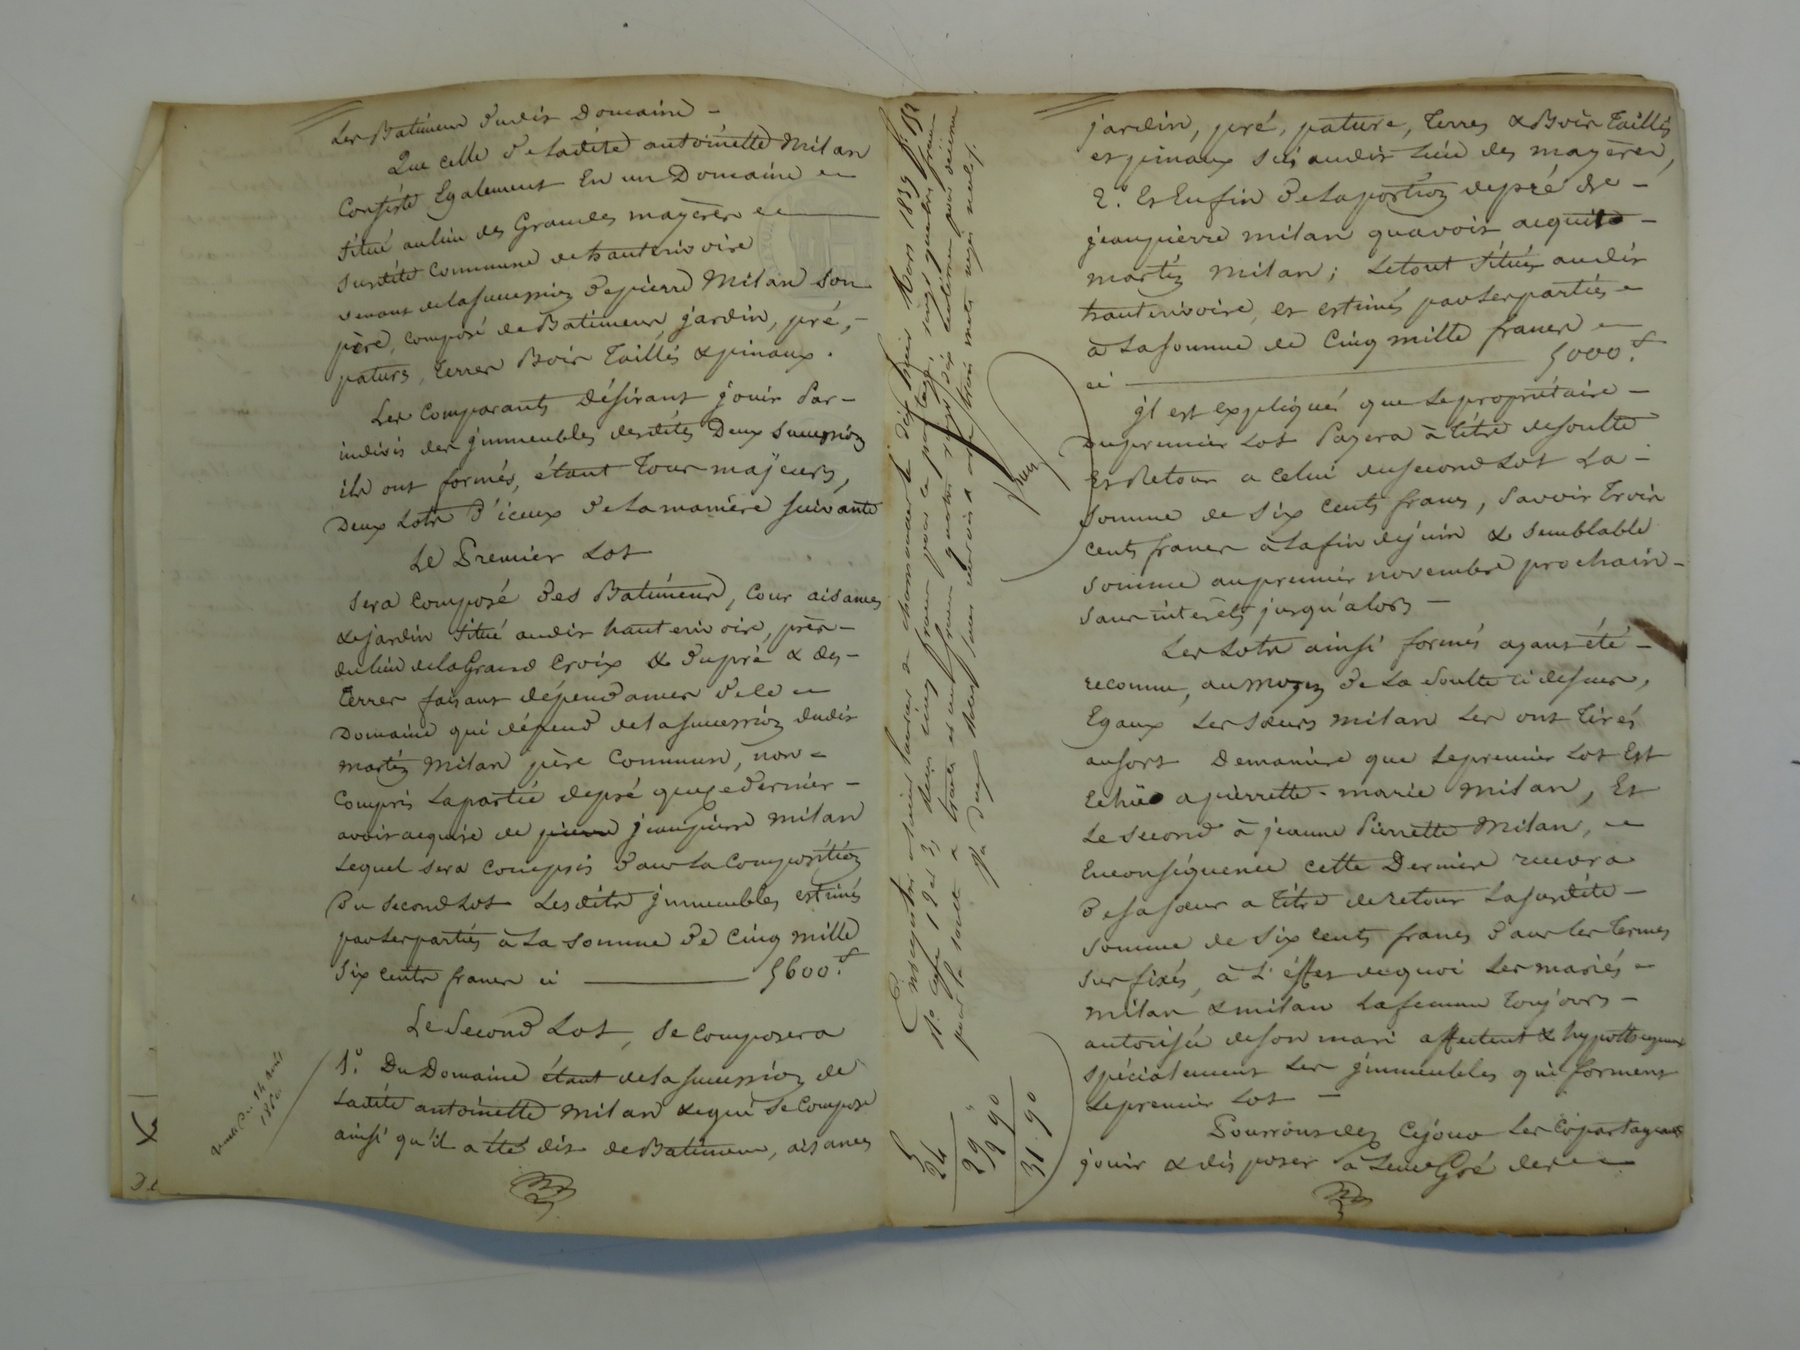 Les Batiments dudit Domaine -
Que celle de ladite antoinette Milan
Consiste Egalement En un Domaine
situé au lieu des Grandes mayères
susdite Commune de hauterivoire
venant de la succession de pierre Milan son
père, composé de Batiments, jardin, pré,
paturs, terres Bois Taillis & pinaux.
Les Comparants Désirant jouir Par-
indivis des jmmeubles desdites Deux successions
ils ont formés, étant Tous majeurs,
Deux Lots d'iceux de la manière suivante
Le Premier Lot
sera composé des Batiments, Cour aisances
& jardin situé audit hauterivoire, près-
du lieu de la Grand Croix & du pré & des-
terres faisant dépendances de ce
Domaine qui dépend de la succession dudit
martin Milan père Commun, non-
Compris la partie de pré que ce dernier-
avoit acquise de pierre jeanpierre milan
Lequel sera compris dans la Composition
du second Lot Lesdits jmmeubles estimés
par les parties à la somme de Cinq mille
six cents francs ci 5600.f
Le Second Lot, se composera
1.° Du Domaine étant de la succession de
Ladite antoinette Milan & qui se Compose
ainsi qu'il a été dit de Batiments, aisances
14 avril
Enregistré à Saint Laurent de Chamousset le dix huit Mars 1839 f.° 158
R.° case 1 et 3, Reçu cinq francs pour le partage, vingt quatre francs
pour la soulte
5
24
29 "
2 90
31. 90
jardin, pré, pature, terres & Bois Taillis
et pinaux sis audit Lieu des mayères,
2.° Et Enfin de la portion de pré de -
jeanpierre milan qu'avoit acquit -
martin Milan; Le tout situés audit
hauterivoire, et estimés par les parties
à la somme de Cinq mille francs
ci 5000.f
jl est Expliqué que Le propriétaire -
du premier Lot Payera à titre de soulte
et Retour a Celui du second Lot La -
somme de six cents francs, savoir Trois
cents francs à la fin de juin & semblable
somme au premier novembre prochain -
sans intérêts jusqu'alors -
Les Lots ainsi formés ayant été -
reconnu, au moyen de La soulte ci dessus,
Egaux Les sœurs milan Les ont tirés
au sort De manière que Le premier Lot Est
Echüe a pierrette-marie Milan, Et
Le second à jeanne Pierrette Milan,
En conséquence cette Dernière recevra
de sa sœur a titre de retour La susdite -
somme de six cents francs dans les termes
sus fixés, à L'effet de quoi Les mariés -
milan & milan La femme Toujours -
autorisée de son mari affectent & hypothequent
spécialement Les jmmeubles qui forment
Le premier Lot -
Pourront dez Ce jour Les Copartageants
jouir & disposer à Leur Gré des